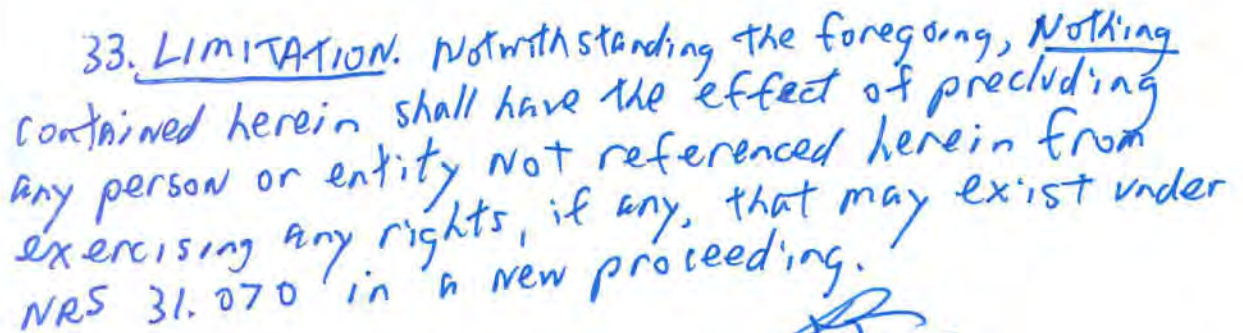 33. LIMITATION. Notwithstanding the foregoing, Nothing
contained herein shall have the effect of precluding
any person or entity Not referenced herein from
exercising any rights, if any, that may exist under
NRS 31.070 in a new proceeding.